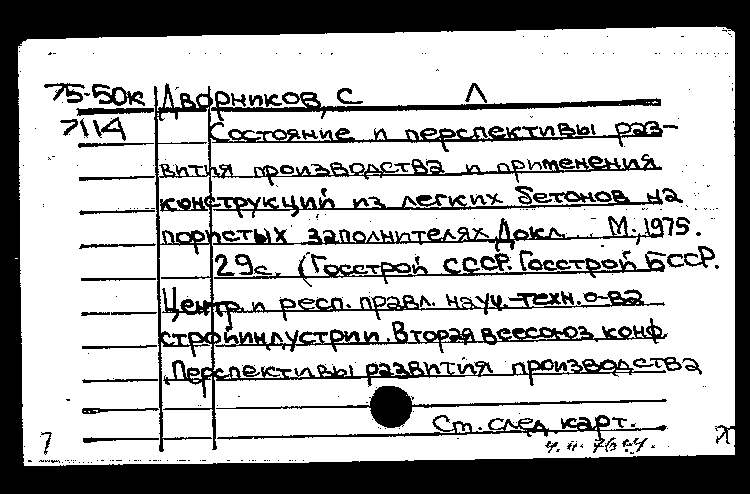 75-50к Дворников, С Л
7114 Состояние и перспективы раз-
вития производства и применения
конструкций из легких бетонов на
пористых заполнителях. Докл... М., 1975.
29с. (Госстрой СССР. Госстрой БССР.
Центр. и респ. правл. науч.-техн. о-ва
стройиндустрии. Вторая всесоюз. конф.
"Перспективы развития производства
Ст. след. карт.
7